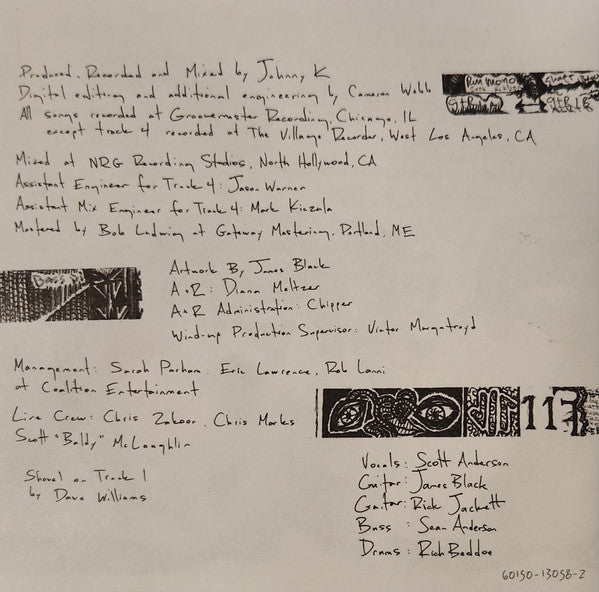 Produced, Recorded and Mixed by Johnny K
Digital editing and additional engineering by Cameron Webb
All songs recorded at Groovemaster Recording, Chicago, IL
except track 4 recorded at The Village Recorder, West Los Angeles, CA
Mixed at NRG Recording Studios, North Hollywood, CA
Assistant Engineer for Track 4: Jason Warner
Assistant Mix Engineer for Track 4: Mark Kiczula
Mastered by Bob Ludwig at Gateway Mastering, Portland, ME
Artwork By James Black
A+R: Diana Meltzer
A+R Administration: Chipper
Wind-up Production Supervisor: Victor Murgatroyd
Management: Sarah Parham, Eric Lawrence, Rob Lanni
at Coalition Entertainment
Live Crew: Chris Zakoor, Chris Marks
Scott "Baldy" McLaughlin
113
Shovel on Track 1
by Dave Williams
Vocals: Scott Anderson
Guitar: James Black
Guitar: Rick Jackett
Bass: Sean Anderson
Drums: Rich Beddoe
60150-13058-2